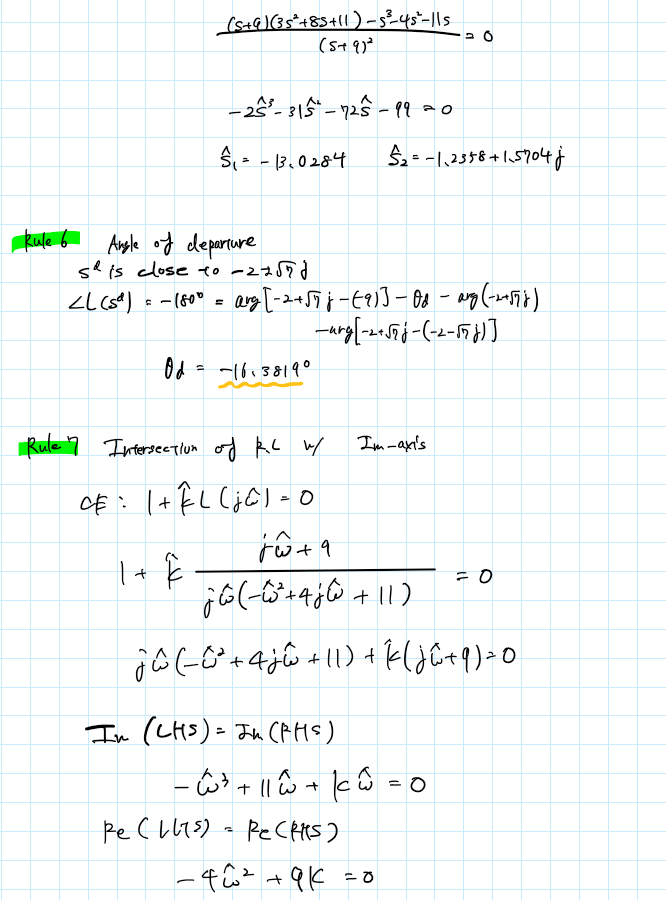 ((s+9)(3s²+8s+11) - s³-4s²-11s)/(s+9)² = 0
-2ŝ³ - 31ŝ² - 72ŝ - 99 = 0
ŝ₁ = -13.0284 ŝ₂ = -1.2358+1.5704j
Rule 6 Angle of departure
s^d is close to -2+√7j
∠L(s^d) = -180° = arg[-2+√7j-(-9)] - θd - arg(-2+√7j)
-arg[-2+√7j-(-2-√7j)]
θd = -16.3819°
Rule 7 Intersection of RL w/ Im-axis
CE: 1+k̂L(jω̂) = 0
1 + k̂ (jω̂+9)/(jω̂(-ω̂²+4jω̂+11)) = 0
jω̂(-ω̂²+4jω̂+11) + k̂(jω̂+9) = 0
Im(LHS) = Im(RHS)
-ω̂³ + 11ω̂ + kω̂ = 0
Re(LHS) = Re(RHS)
-4ω̂² + 9k = 0